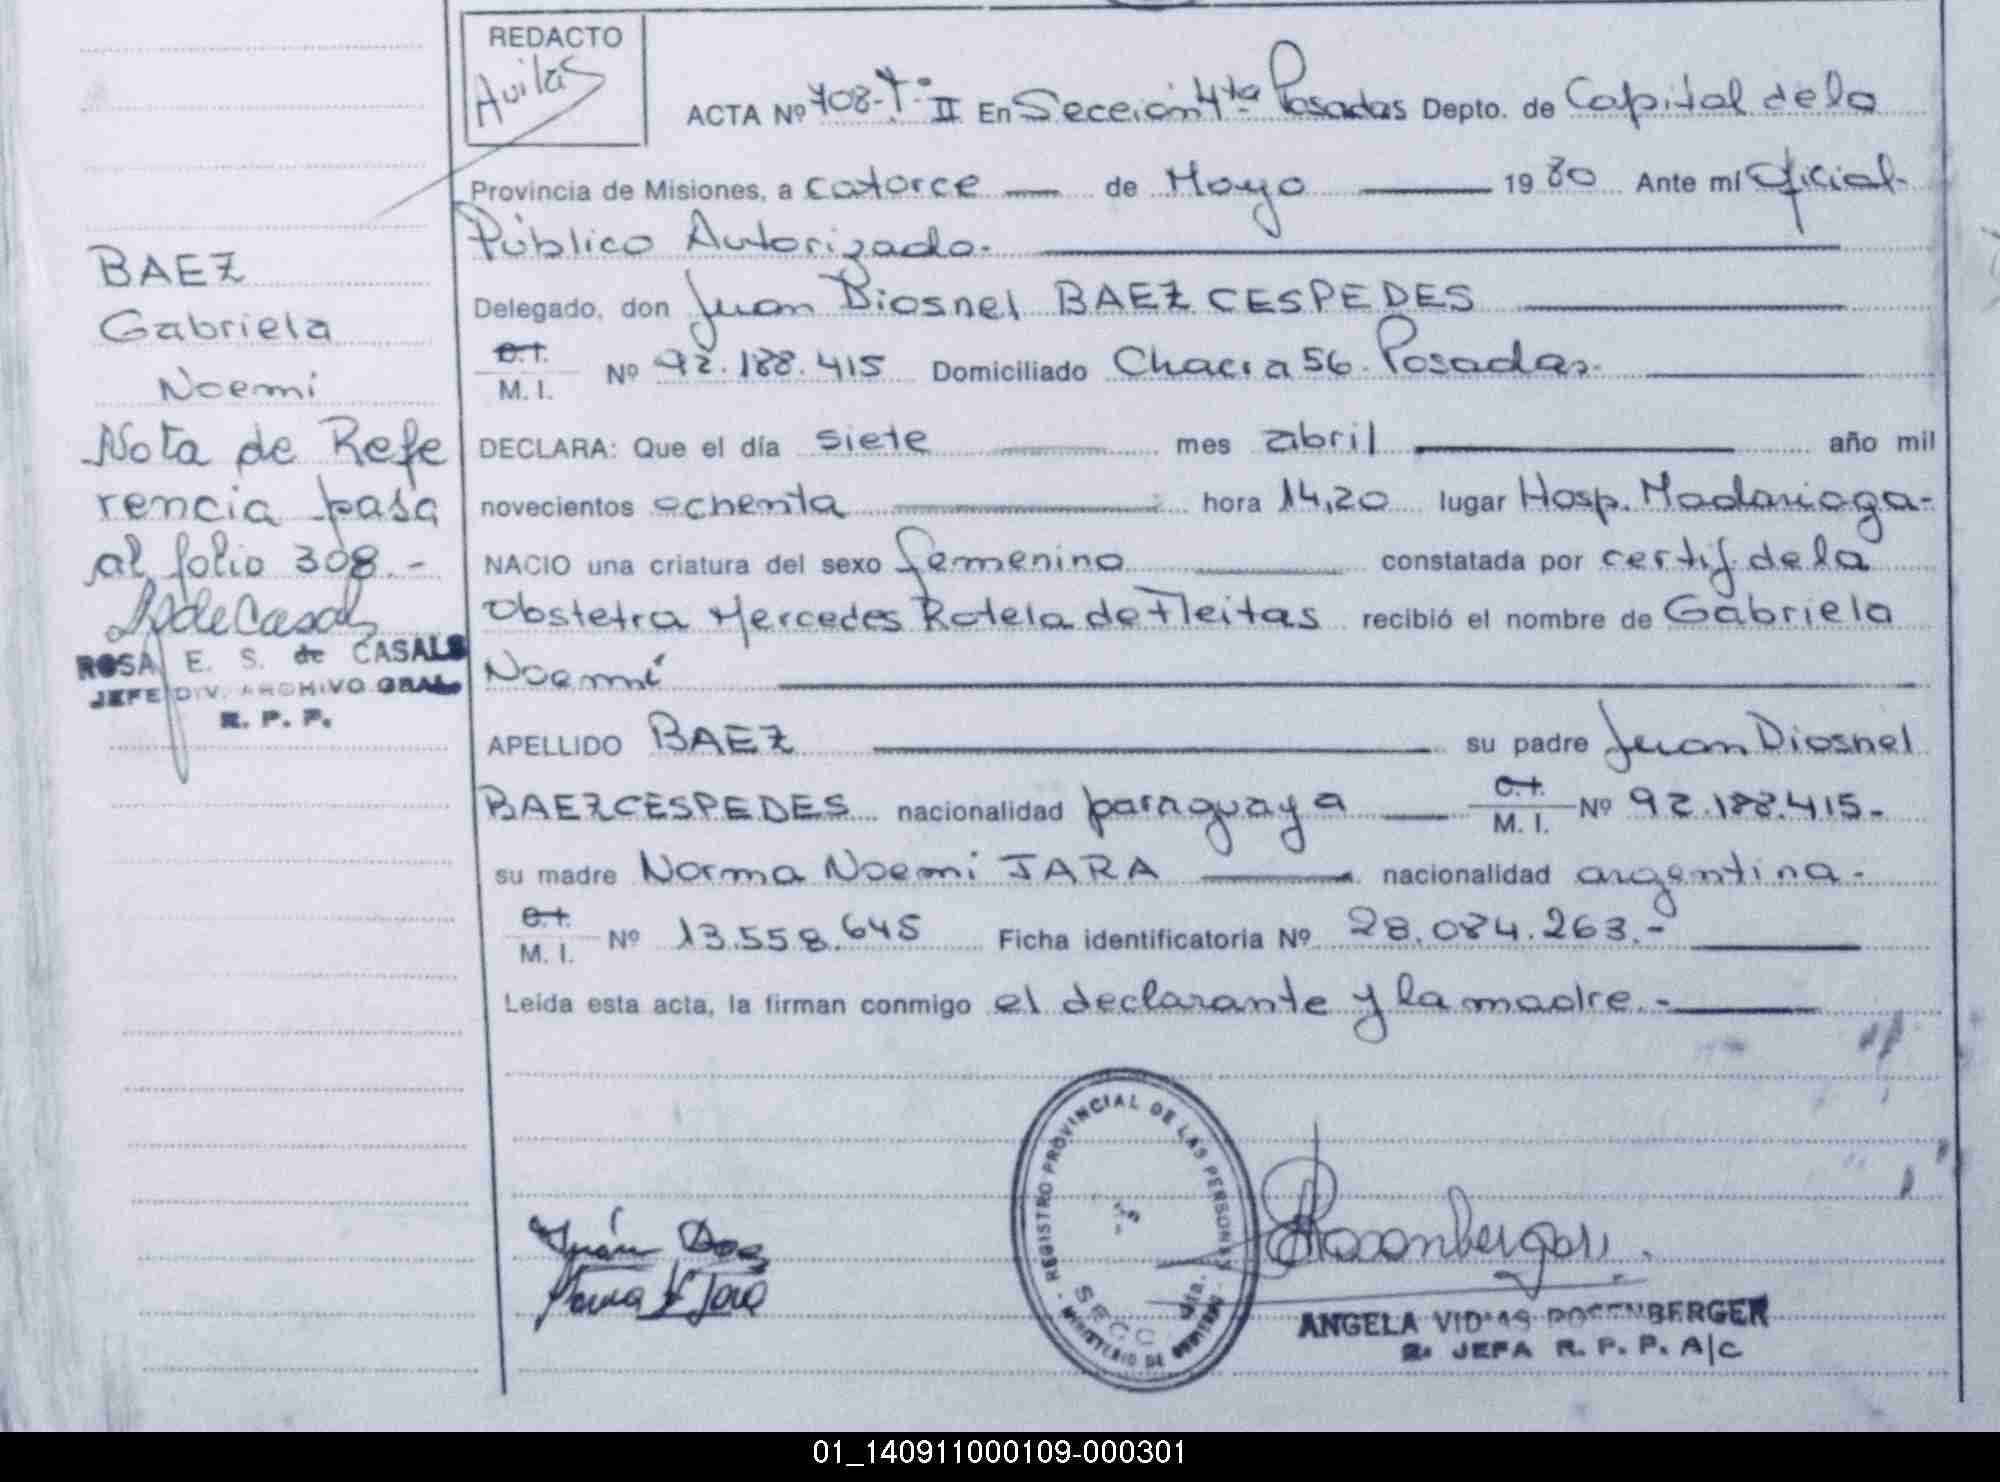 REDACTO
Avilas
ACTA Nº 708-Tº II En Sección 4ta Posadas Depto. de Capital de la
Provincia de Misiones, a catorce de Mayo 1980 Ante mí Oficial
Público Autorizado.
Delegado, don Juan Diosnel BAEZ CESPEDES
C.I.
M. I. Nº 92.188.415 Domiciliado Chacra 56. Posadas.
DECLARA: Que el día siete mes abril año mil
novecientos ochenta hora 14,20 lugar Hosp. Madariaga-
NACIO una criatura del sexo femenino constatada por certif. de la
Obstetra Mercedes Rotela de Fleitas recibió el nombre de Gabriela
Noemí
APELLIDO BAEZ su padre Juan Diosnel
BAEZ CESPEDES nacionalidad paraguaya C.I. M. I. Nº 92.188.415-
su madre Norma Noemi JARA nacionalidad argentina-
C.I.
M. I. Nº 13.558.645 Ficha identificatoria Nº 28.084.263.-
Leída esta acta, la firman conmigo el declarante y la madre.-
BAEZ
Gabriela
Noemi
Nota de Refe
rencia pasa
al folio 308.-
ROSA E. S. de CASALS
JEFE DIV. ARCHIVO GRAL.
R. P. P.
REGISTRO PROVINCIAL DE LAS PERSONAS
SECC. 4ta.
MINISTERIO DE GOBIERNO
Rosenberger
ANGELA VIDMAS ROSENBERGER
2ª JEFA R. P. P. A/C
01_140911000109-000301